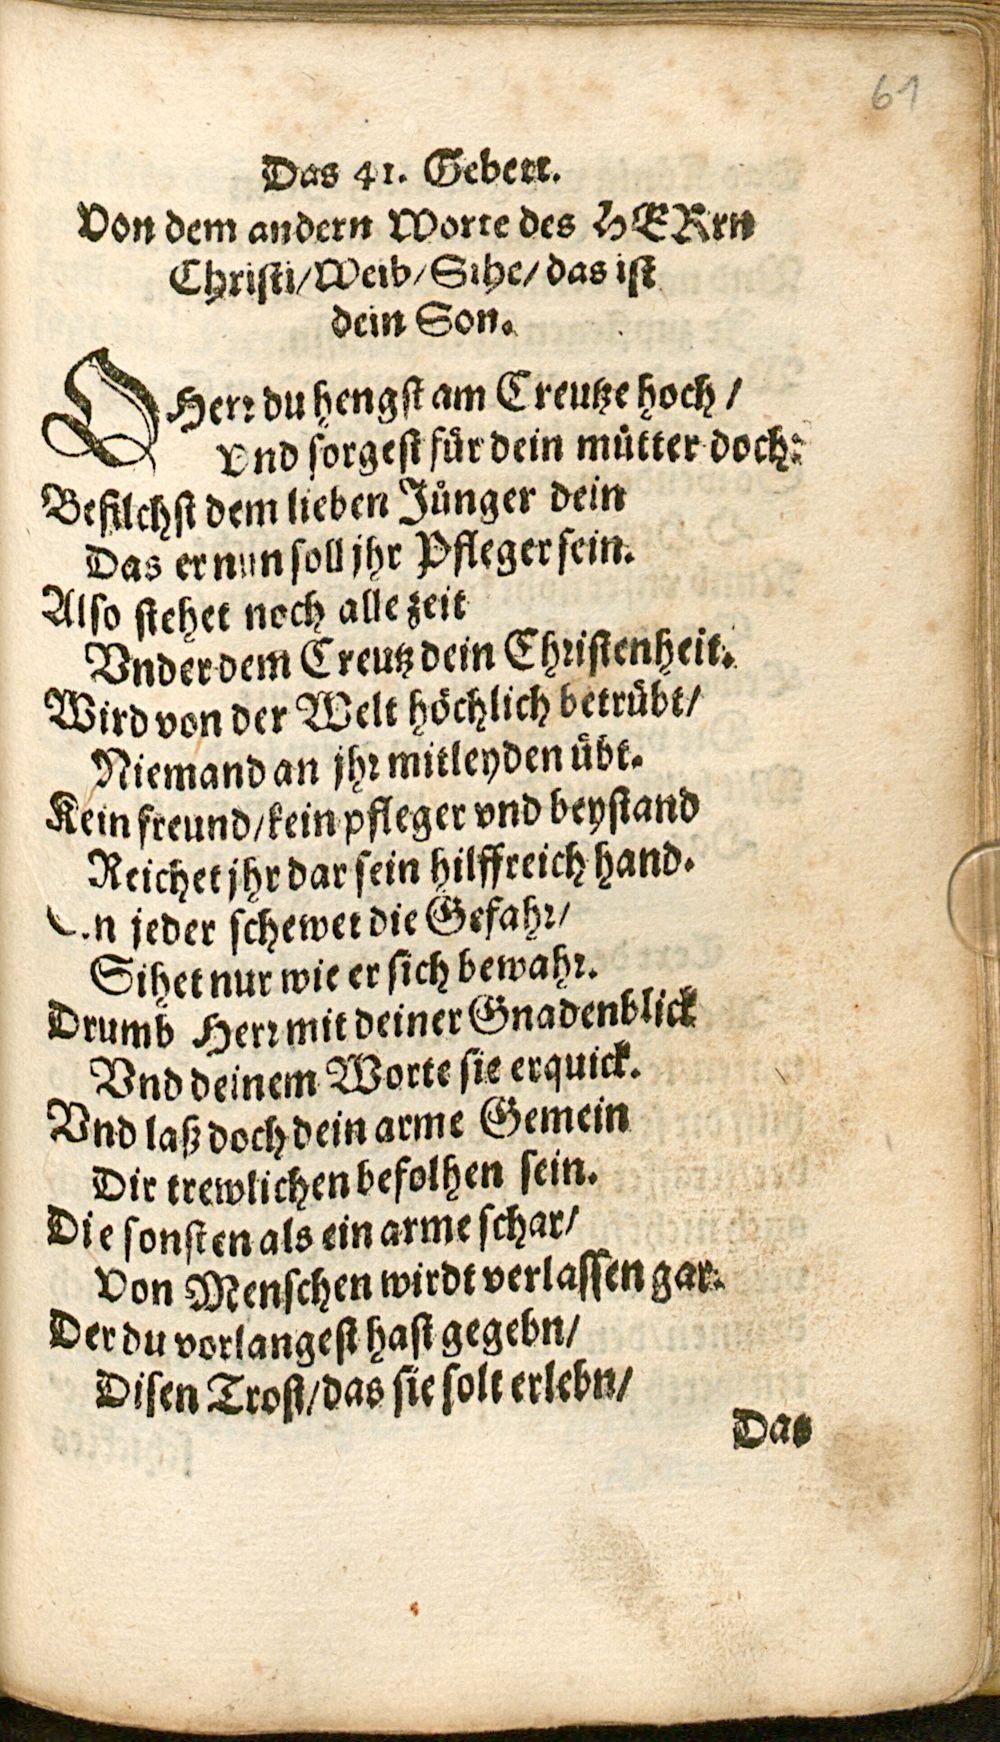 61
Das 41. Gebett.
Von dem andern Worte des HERrn
Christi/Weib/Sihe/das ist
dein Son.
O Herr du hengst am Creutze hoch/
vnd sorgest für dein mütter doch:
Befilchst dem lieben Jünger dein
Das er nun soll jhr Pfleger sein.
Also stehet noch alle zeit
Vnder dem Creutz dein Christenheit.
Wird von der Welt höchlich betrübt/
Niemand an jhr mitleyden übt.
Kein freund/kein pfleger vnd beystand
Reichet jhr dar sein hilffreich hand.
Ein jeder schewet die Gefahr/
Sihet nur wie er sich bewahr.
Drumb Herr mit deiner Gnadenblick
Vnd deinem Worte sie erquick.
Vnd laß doch dein arme Gemein
Dir trewlichen befolhen sein.
Die sonsten als ein arme schar/
Von Menschen wirdt verlassen gar.
Der du vorlangest hast gegebn/
Disen Trost/das sie solt erlebn/
Das